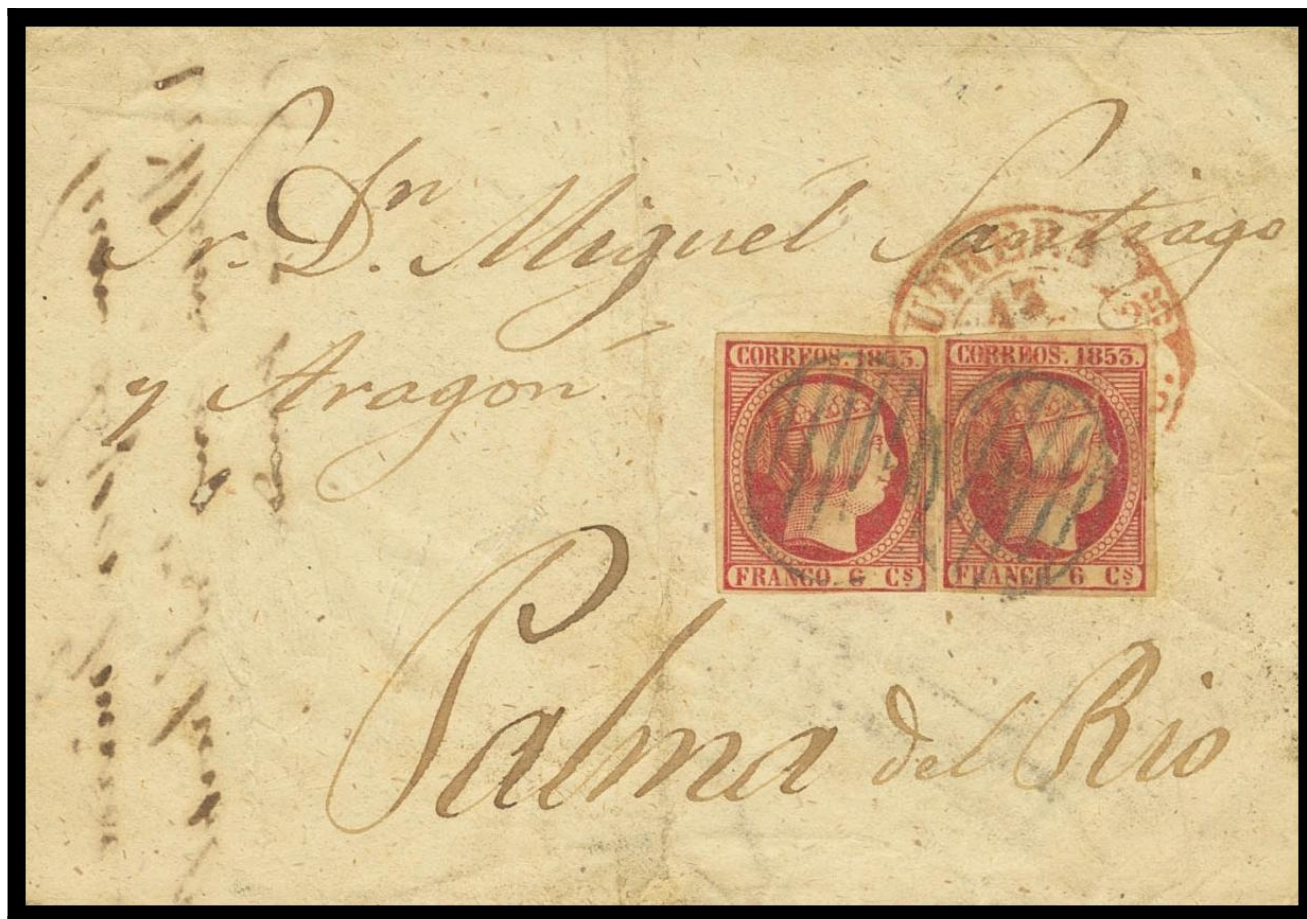 Sr. Dn. Miguel Santiago
y Aragon.
UTRERA
13
25
CORREOS. 1853.
FRANCO. 6 Cs
CORREOS. 1853.
FRANCO. 6 Cs
Palma del Rio